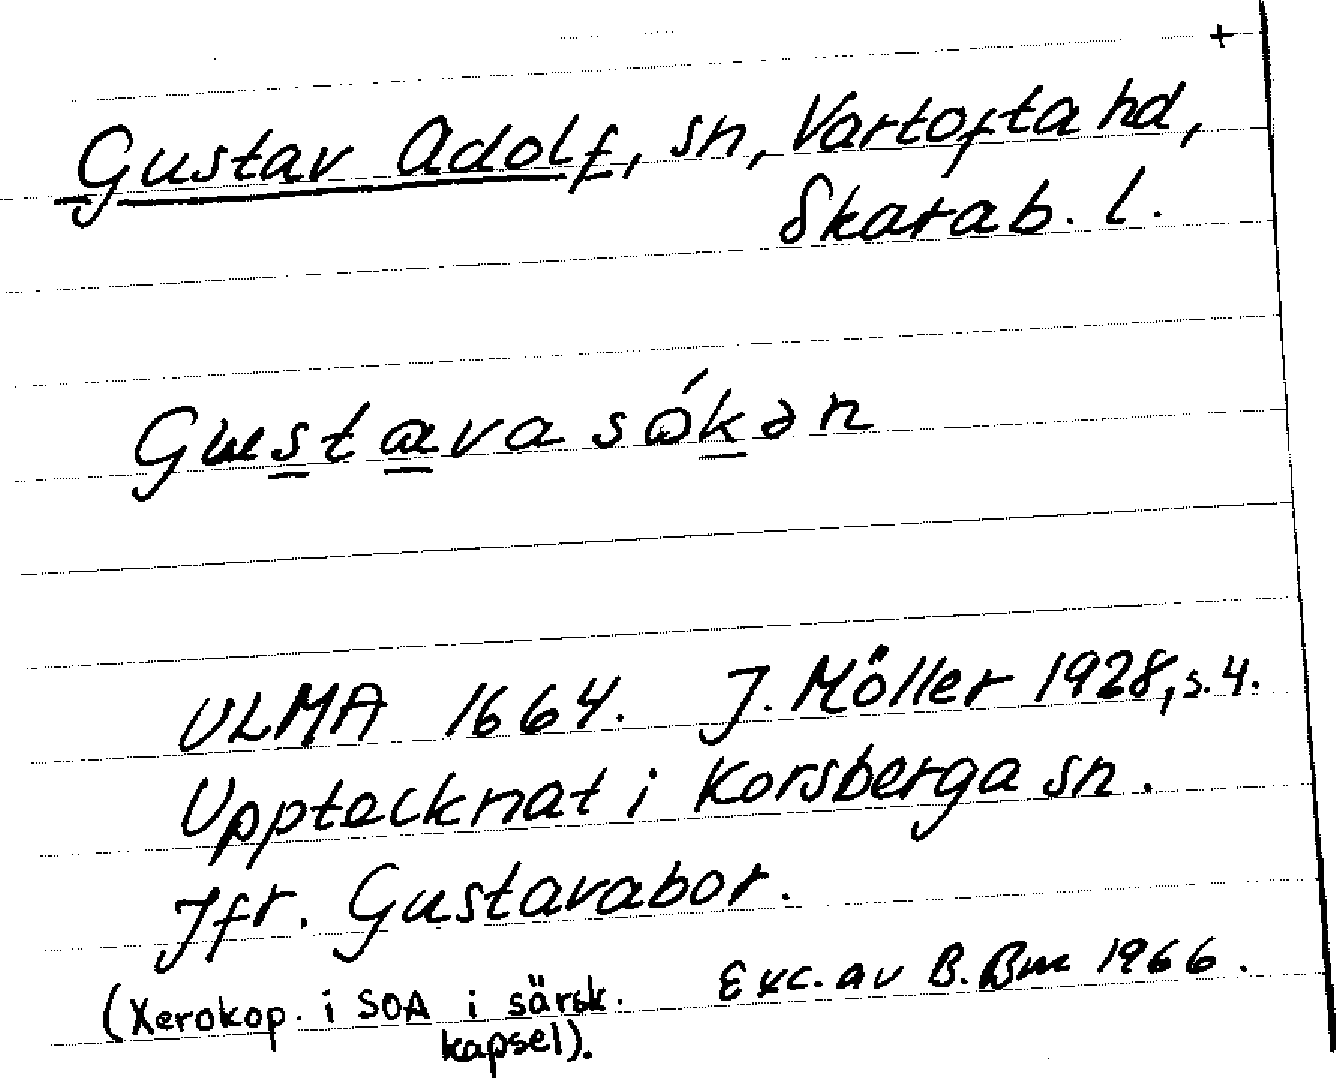 +
Gustav Adolf, sn, Vartofta hd,
Skarab. l.
Gustava sǿkən
ULMA 1664. J. Möller 1928, s. 4.
Upptecknat i Korsberga sn.
Jfr. Gustavabor.
Exc. av B. Bm 1966.
(Xerokop. i SOA i särsk.
kapsel).